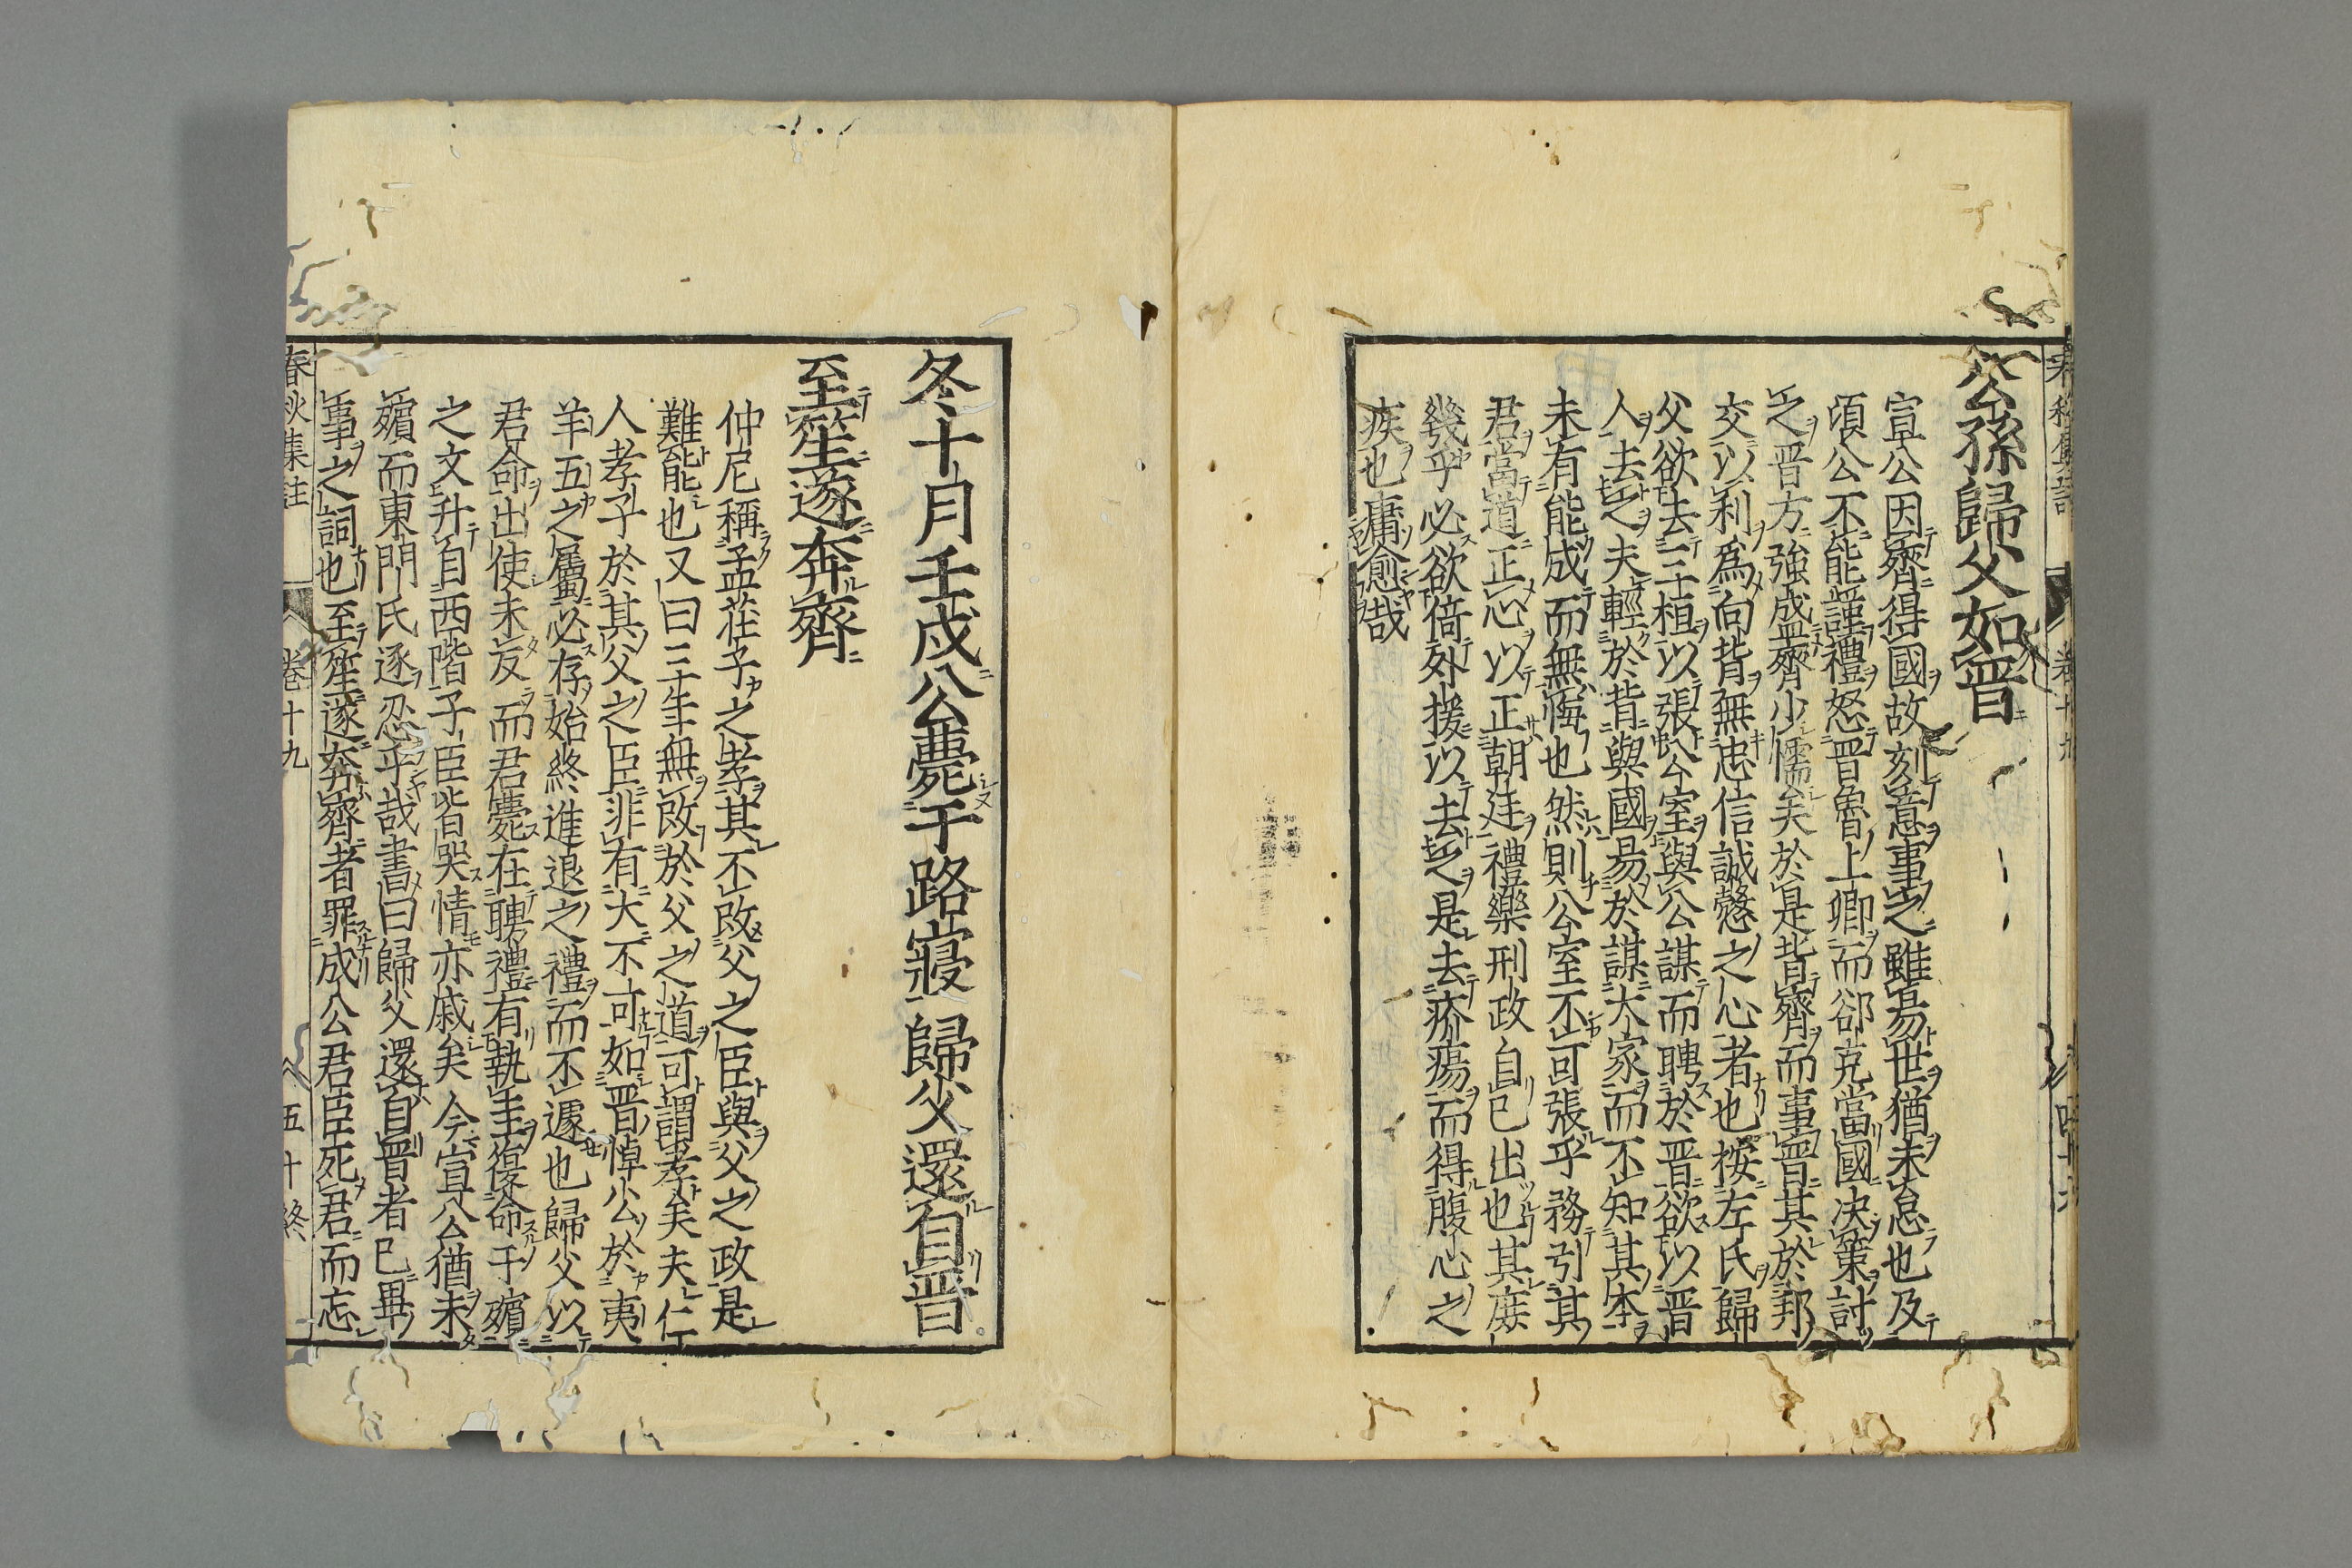 公孫歸父如晋
宣公因齊得國故刻意事之雖易世猶未怠也及
頃公不能謹禮怒晋魯上卿而郤克當國决策討
之晋方強成盟齊少懦矣於是背齊而事晋其於邦
交以利爲向背無忠信誠慤之心者也按左氏歸
父欲去三桓以張公室與公謀而聘於晋欲以晋
人去之夫輕於背與國易於謀大家而不知其本
未有能成而無悔也然則公室不可張乎務引其
君當道正心以正朝廷禮樂刑政自己出也其庶
幾乎必欲倚外援以去之是去疥瘍而得腹心之
疾也庸愈哉
冬十月壬戌公薨于路寢歸父還自晋
至笙遂奔齊
仲尼稱孟莊子之孝其不改父之臣與父之政是
難能也又曰三年無改於父之道可謂孝矣夫仁
人孝子於其父之臣非有大不可如晋悼公於夷
羊五之屬必存始終進退之禮而不遽也歸父以
君命出使未反而君薨在聘禮有執圭復命于殯
之文升自西階子臣皆哭情亦戚矣今宣公猶未
殯而東門氏逐忍乎哉書曰歸父還自晋者已畢
事之詞也至笙遂奔齊者罪成公君臣死君而忘
春秋集註 卷十九 五十終